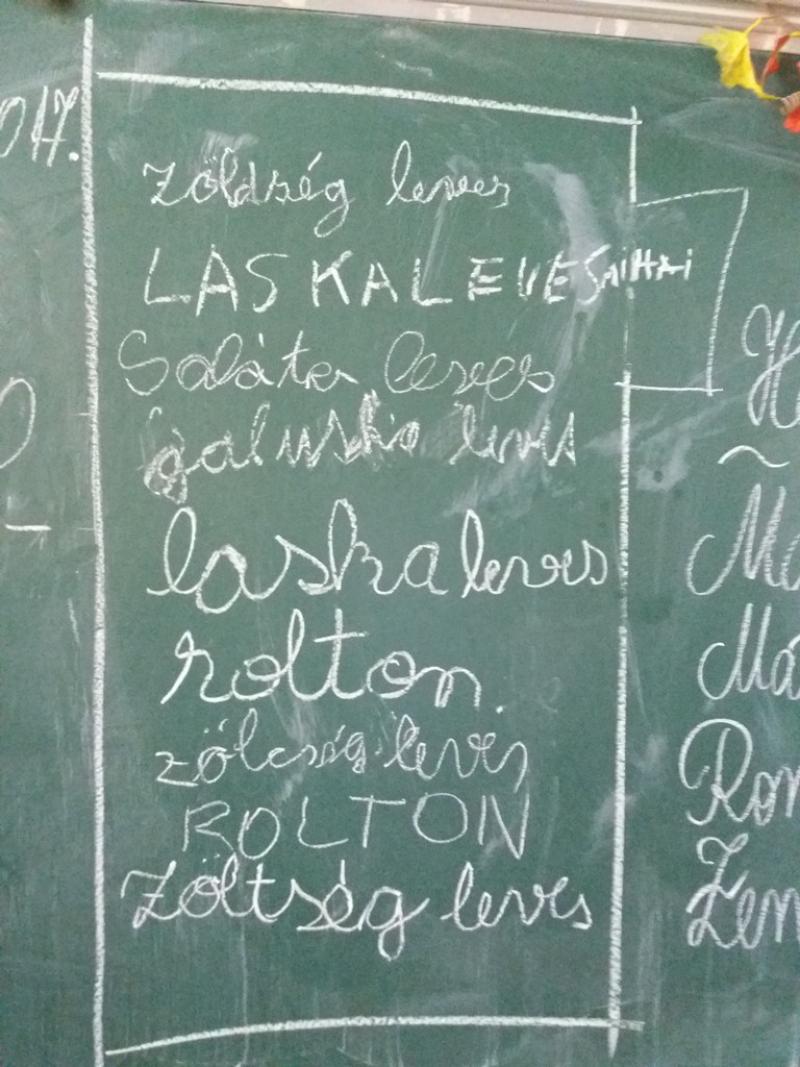 017.
zöldség leves
LASKALEVES MIHAI
Saláta leves
galuska leves
laska leves
rolton.
zölcség leves
ROLTON
Zöltség leves
Má
Ron
Zen